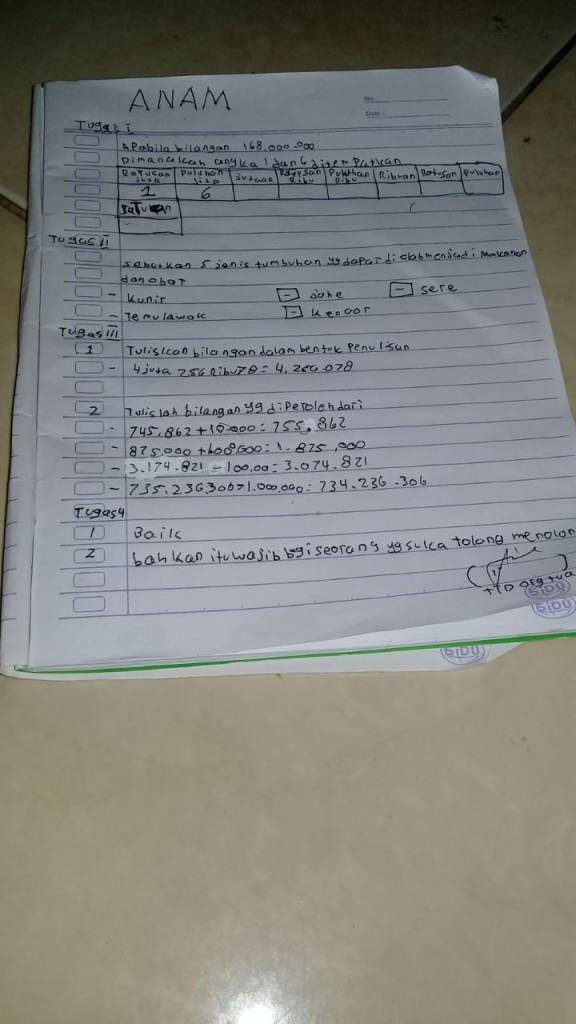 ANAM
No.
Date:
Tugas I
Apabila bilangan 168.000.000
Dimanakah angka 1 dan 6 ditempatkan
Ratusan Juta Puluhan Juta Jutaan Ratusan Ribu Puluhan Ribu Ribuan Ratusan Puluhan
1 6
Satuan
Tugas II
sebutkan 5 jenis tumbuhan yg dapat di olah menjadi makanan
dan obat
- Kunir - jahe - sere
- Temulawak - Kencor
Tugas III
1 Tuliskan bilangan dalam bentuk penulisan
- 4 juta 256 Ribu 78 = 4.256.078
2 Tulislah bilangan yg diperoleh dari
- 745.862 + 10.000 = 755.862
- 825.000 + 1.875.000
- 3.174.821 - 100.00 = 3.074.821
- 735.236.306 1.000.000 = 734.236.306
Tugas 4
1 Baik
2 bahkan itu wajib bgi seorang yg suka tolong menolon
TTD org tua
SIDU
SIDU
SIDU